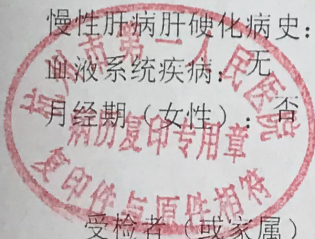 慢性肝病肝硬化病史:
血液系统疾病: 无
月经期（女性）: 否
受检者（或家属）
市第一人民医院
病历复印专用章
复印件与原件相符